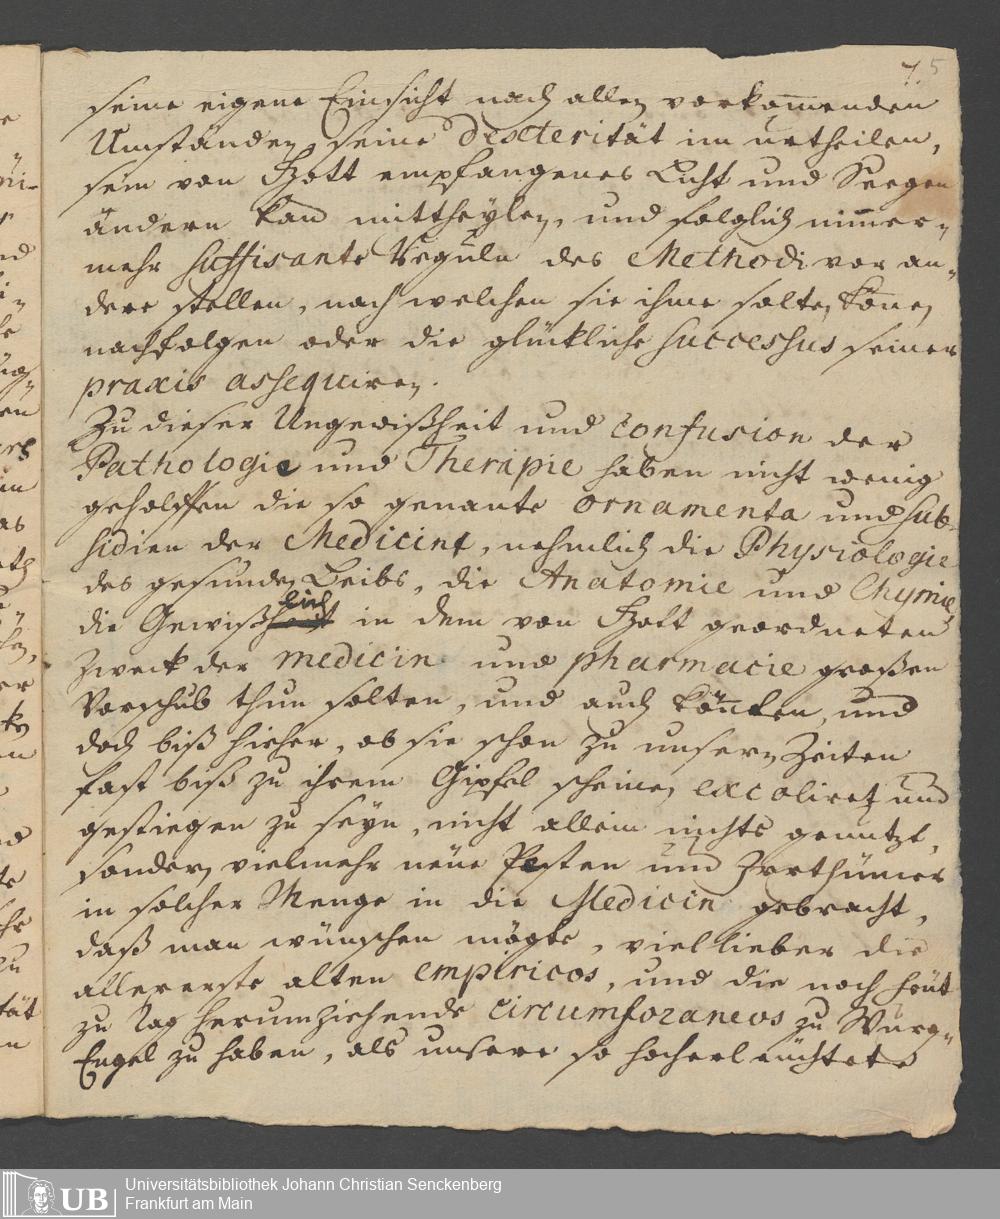 7.5
seine eigene Einsicht nach allen vorkom̅enden
Umständen, seine dexterität im urtheilen,
sein von Gott empfangenes Licht und Seegen
andern kan mittheylen, und folglich nim̅er„
mehr suffisante Reguln des Methodi vor an„
dere stellen, nach welchen sie ihme solten kön̅en
nachfolgen oder die glückliche successus seiner
praxis assequiren.
Zu dieser Ungewißheit und confusion der
Pathologie und Therapie haben nicht wenig
geholffen die so genante ornamenta und sub„
sidien der Medicine, nehmlich die Physiologie
des gesunden Leibs, die Anatomie und Chymie,
die Gewißlich in dem von Gott geordneten
Zweck der medicin und pharmacie großen
Vorschub thun solten, und auch kön̅ten, und
doch biß hieher, ob sie schon zu unsern Zeiten
fast biß zu ihrem Gipfel scheinen excolirt und
gestiegen zu seyn, nicht allein nichts genutzt,
sondern vielmehr neue Pesten und Irrthümer
in solcher Menge in die Medicin gebracht,
daß man wünschen mögte, viel lieber die
allererste alten empiricos, und die noch heut
zu Tag herumziehende circumforaneos zu Würg„
Engel zu haben, als unsere so hocherleuchtete
Universitätsbibliothek Johann Christian Senckenberg
Frankfurt am Main
UB